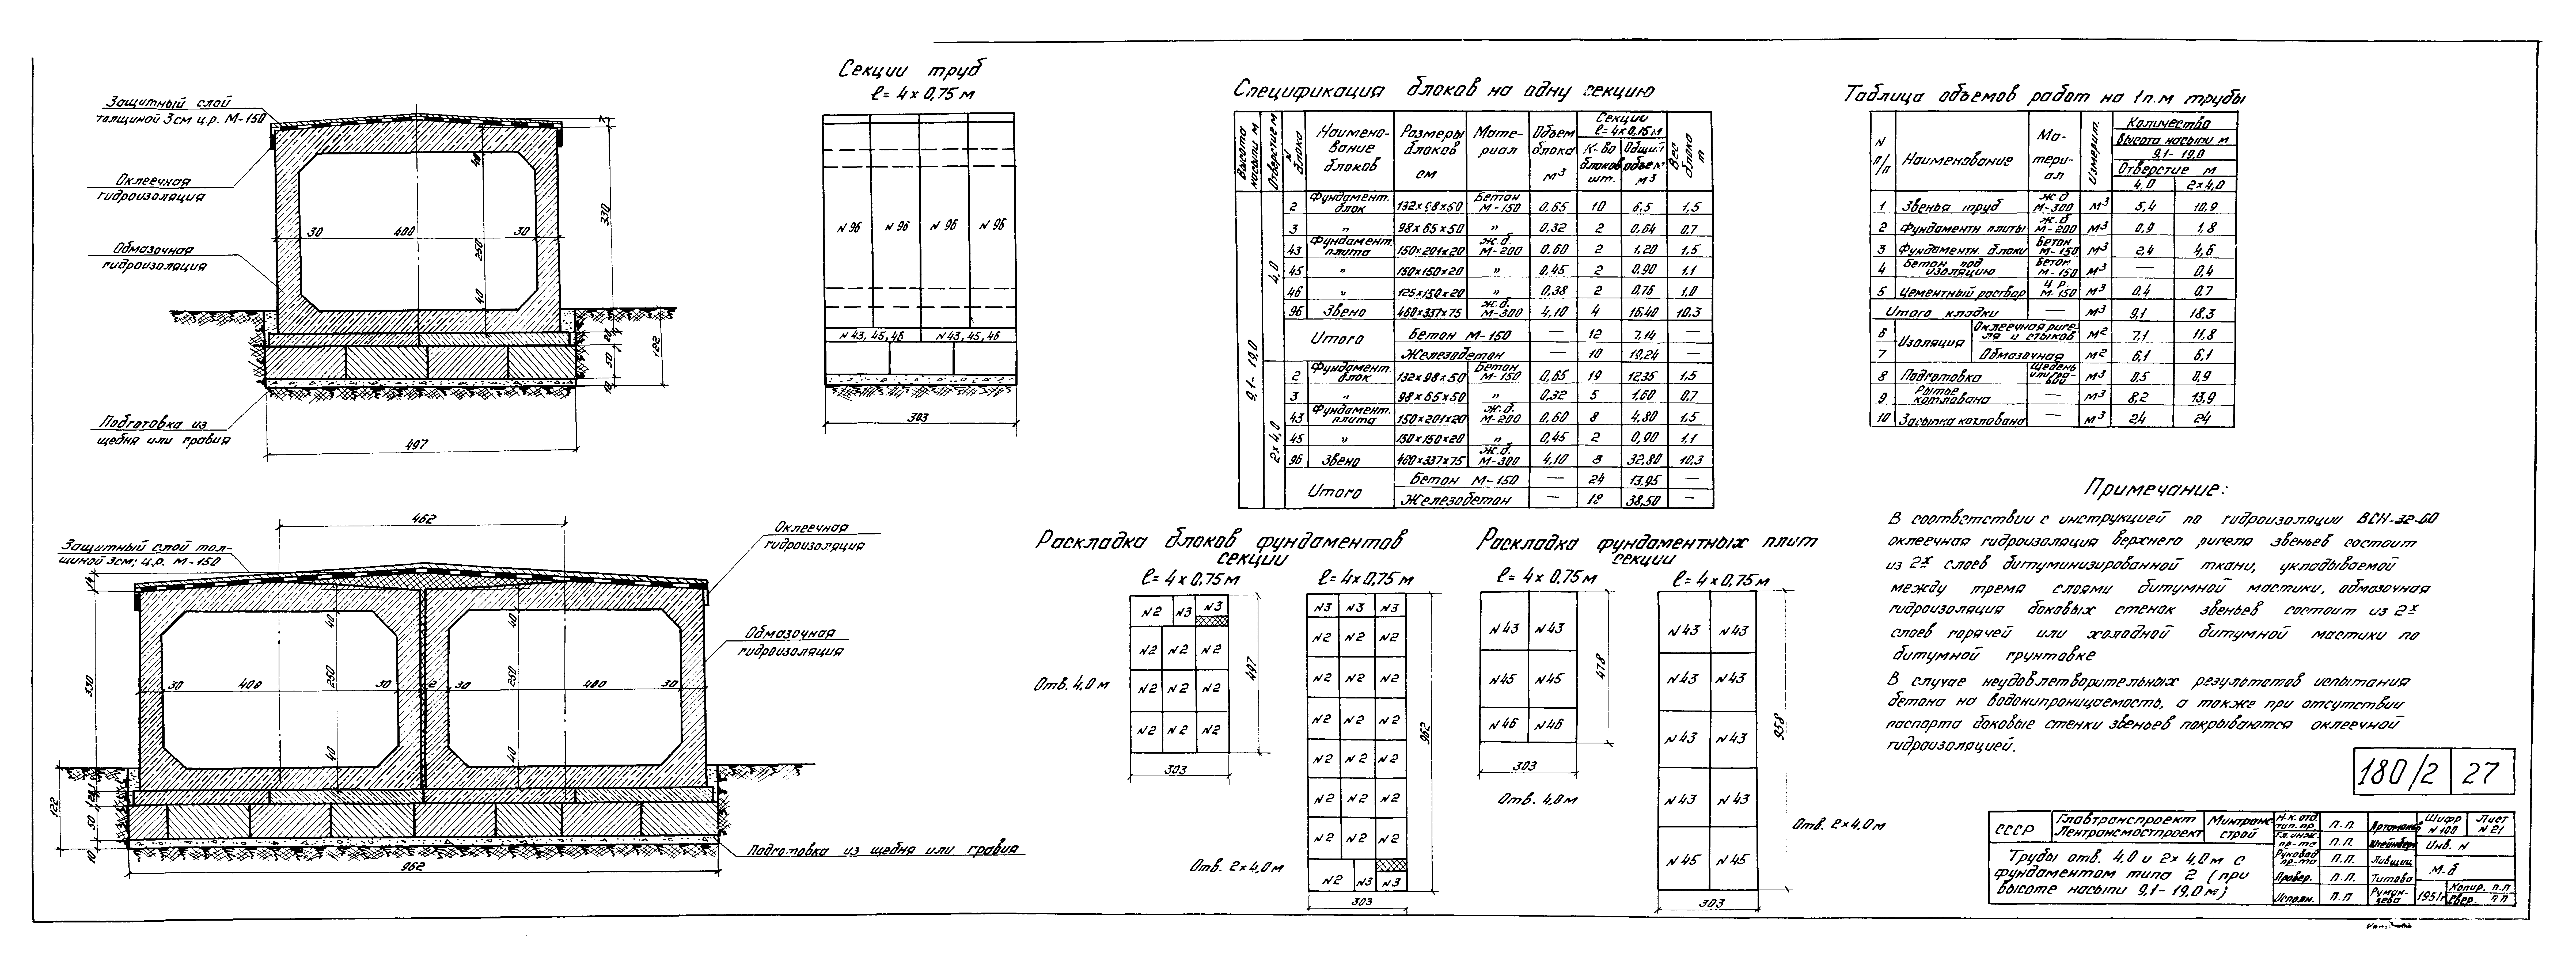 Защитный слой
толщиной 3см ц.р. М-150
Оклеечная
гидроизоляция
Обмазочная
гидроизоляция
Подготовка из
щебня или гравия
30 400 30
40
250
40
7
330
20
50
10
122
497
Секции труб
ℓ= 4×0,75 м
N 96 N 96 N 96 N 96
N 43, 45, 46 N 43, 45, 46
303
462
Защитный слой тол-
щиной 3см; ц.р. М-150
Оклеечная
гидроизоляция
Обмазочная
гидроизоляция
14
330
40 40
250 250
30 400 30 2 30 400 30
40 40
122
20
50
10
Подготовка из щебня или гравия
962
Спецификация блоков на одну секцию
Высота насыпи м
Отверстие м
N блока
Наимено-вание блоков
Размеры блоков см
Мате-риал
Объем блока м³
Секции ℓ=4×0,75м
К-во блоков шт.
Общий объем м³
Вес блока т
9,1- 19,0
4,0
2 Фундамент. блок 132×98×50 Бетон М-150 0,65 10 6,5 1,5
3 " 98×65×50 " 0,32 2 0,64 0,7
43 Фундамент. плита 150×201×20 ж.б. М-200 0,60 2 1,20 1,5
45 " 150×150×20 " 0,45 2 0,90 1,1
46 " 125×150×20 " 0,38 2 0,76 1,0
96 Звено 460×337×75 ж.б. М-300 4,10 4 16,40 10,3
Итого Бетон М-150 — 12 7,14 —
Железобетон — 10 19,24 —
2×4,0
2 Фундамент. блок 132×98×50 Бетон М-150 0,65 19 12,35 1,5
3 " 98×65×50 " 0,32 5 1,60 0,7
43 Фундамент. плита 150×201×20 ж.б. М-200 0,60 8 4,80 1,5
45 " 150×150×20 " 0,45 2 0,90 1,1
96 Звено 460×337×75 ж.б. М-300 4,10 8 32,80 10,3
Итого Бетон М-150 — 24 13,95 —
Железобетон — 18 38,50 —
Раскладка блоков фундаментов
секции
ℓ= 4×0,75 м ℓ= 4×0,75 м
N2 N3 N3
N2 N2 N2
N2 N2 N2
N2 N2 N2
497
303
Отв. 4,0 м
N3 N3 N3
N2 N2 N2
N2 N2 N2
N2 N2 N2
N2 N2 N2
N2 N2 N2
N2 N2 N2
N2 N3 N3
962
303
Отв. 2×4,0м
Раскладка фундаментных плит
секции
ℓ= 4×0,75 м ℓ= 4×0,75 м
N43 N43
N45 N45
N46 N46
478
303
Отв. 4,0м
N43 N43
N43 N43
N43 N43
N43 N43
N45 N45
958
303
Отв. 2×4,0м
Таблица объемов работ на 1п.м трубы
N п/п
Наименование
Ма-тери-ал
Измерит.
Количество
Высота насыпи м
9,1- 19,0
Отверстие м
4,0 2×4,0
1 Звенья труб ж.б М-300 м³ 5,4 10,9
2 Фундаментн. плиты ж.б М-200 м³ 0,9 1,8
3 Фундаментн. блоки Бетон М-150 м³ 2,4 4,6
4 Бетон под изоляцию Бетон М-150 м³ — 0,4
5 Цементный раствор ц.р. М-150 м³ 0,4 0,7
Итого кладки — м³ 9,1 18,3
6 Изоляция Оклеечная риге-ля и стыков м² 7,1 11,8
7 Обмазочная м² 6,1 6,1
8 Подготовка щебень или гра-вий м³ 0,5 0,9
9 Рытье котлована — м³ 8,2 13,9
10 Засыпка котлована — м³ 2,4 24
Примечание:
В соответствии с инструкцией по гидроизоляции ВСН-32-60
оклеечная гидроизоляция верхнего ригеля звеньев состоит
из 2х слоев битуминизированной ткани, укладываемой
между тремя слоями битумной мастики, обмазочная
гидроизоляция боковых стенок звеньев состоит из 2х
слоев горячей или холодной битумной мастики по
битумной грунтовке
В случае неудовлетворительных результатов испытания
бетона на водонипроницаемость, а также при отсутствии
паспорта боковые стенки звеньев покрываются оклеечной
гидроизоляцией.
180/2 27
СССР
Главтранспроект
Лентрансмостпроект
Минтранс
строй
Трубы отв. 4,0 и 2×4,0м с
фундаментом типа 2 (при
высоте насыпи 9,1- 19,0м)
Н-к. отд тип. пр. П.П. Артамонов
Гл. инж. пр-та П.П. Штейнберг
Руковод пр-та П.П. Лившиц
Провер. П.П. Титова
Исполн. П.П. Румян-цева
Шифр N 100
Лист N 21
Инв. N
М.б
1951г
Копир. п.п
Свер. п п